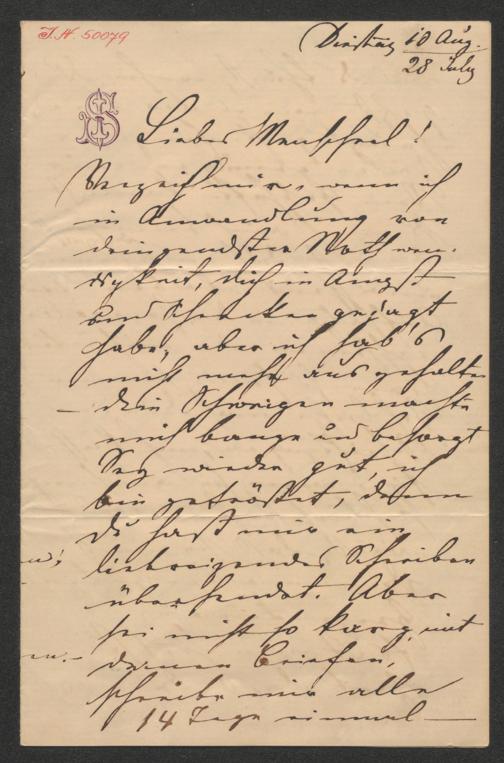 I.N. 50079
Dienstag 10 Aug.
28 July
Liebes Menscherl!
Verzeih mir, wenn ich
in Anwandlung von
dringendster Nothwen-
digkeit, dich in Angst
und Schrecken gejagt
habe, aber ich hab's
nicht mehr ausgehalten
– dein Schweigen machte
mich bange und besorgt
Sey wieder gut, ich
bin getröstet, denn
du hast mir ein
liebreizendes Schreiben
übersendet. Aber
sei nicht so karg mit
deinen Briefen,
schreibe mir alle
14 Tage einmal –